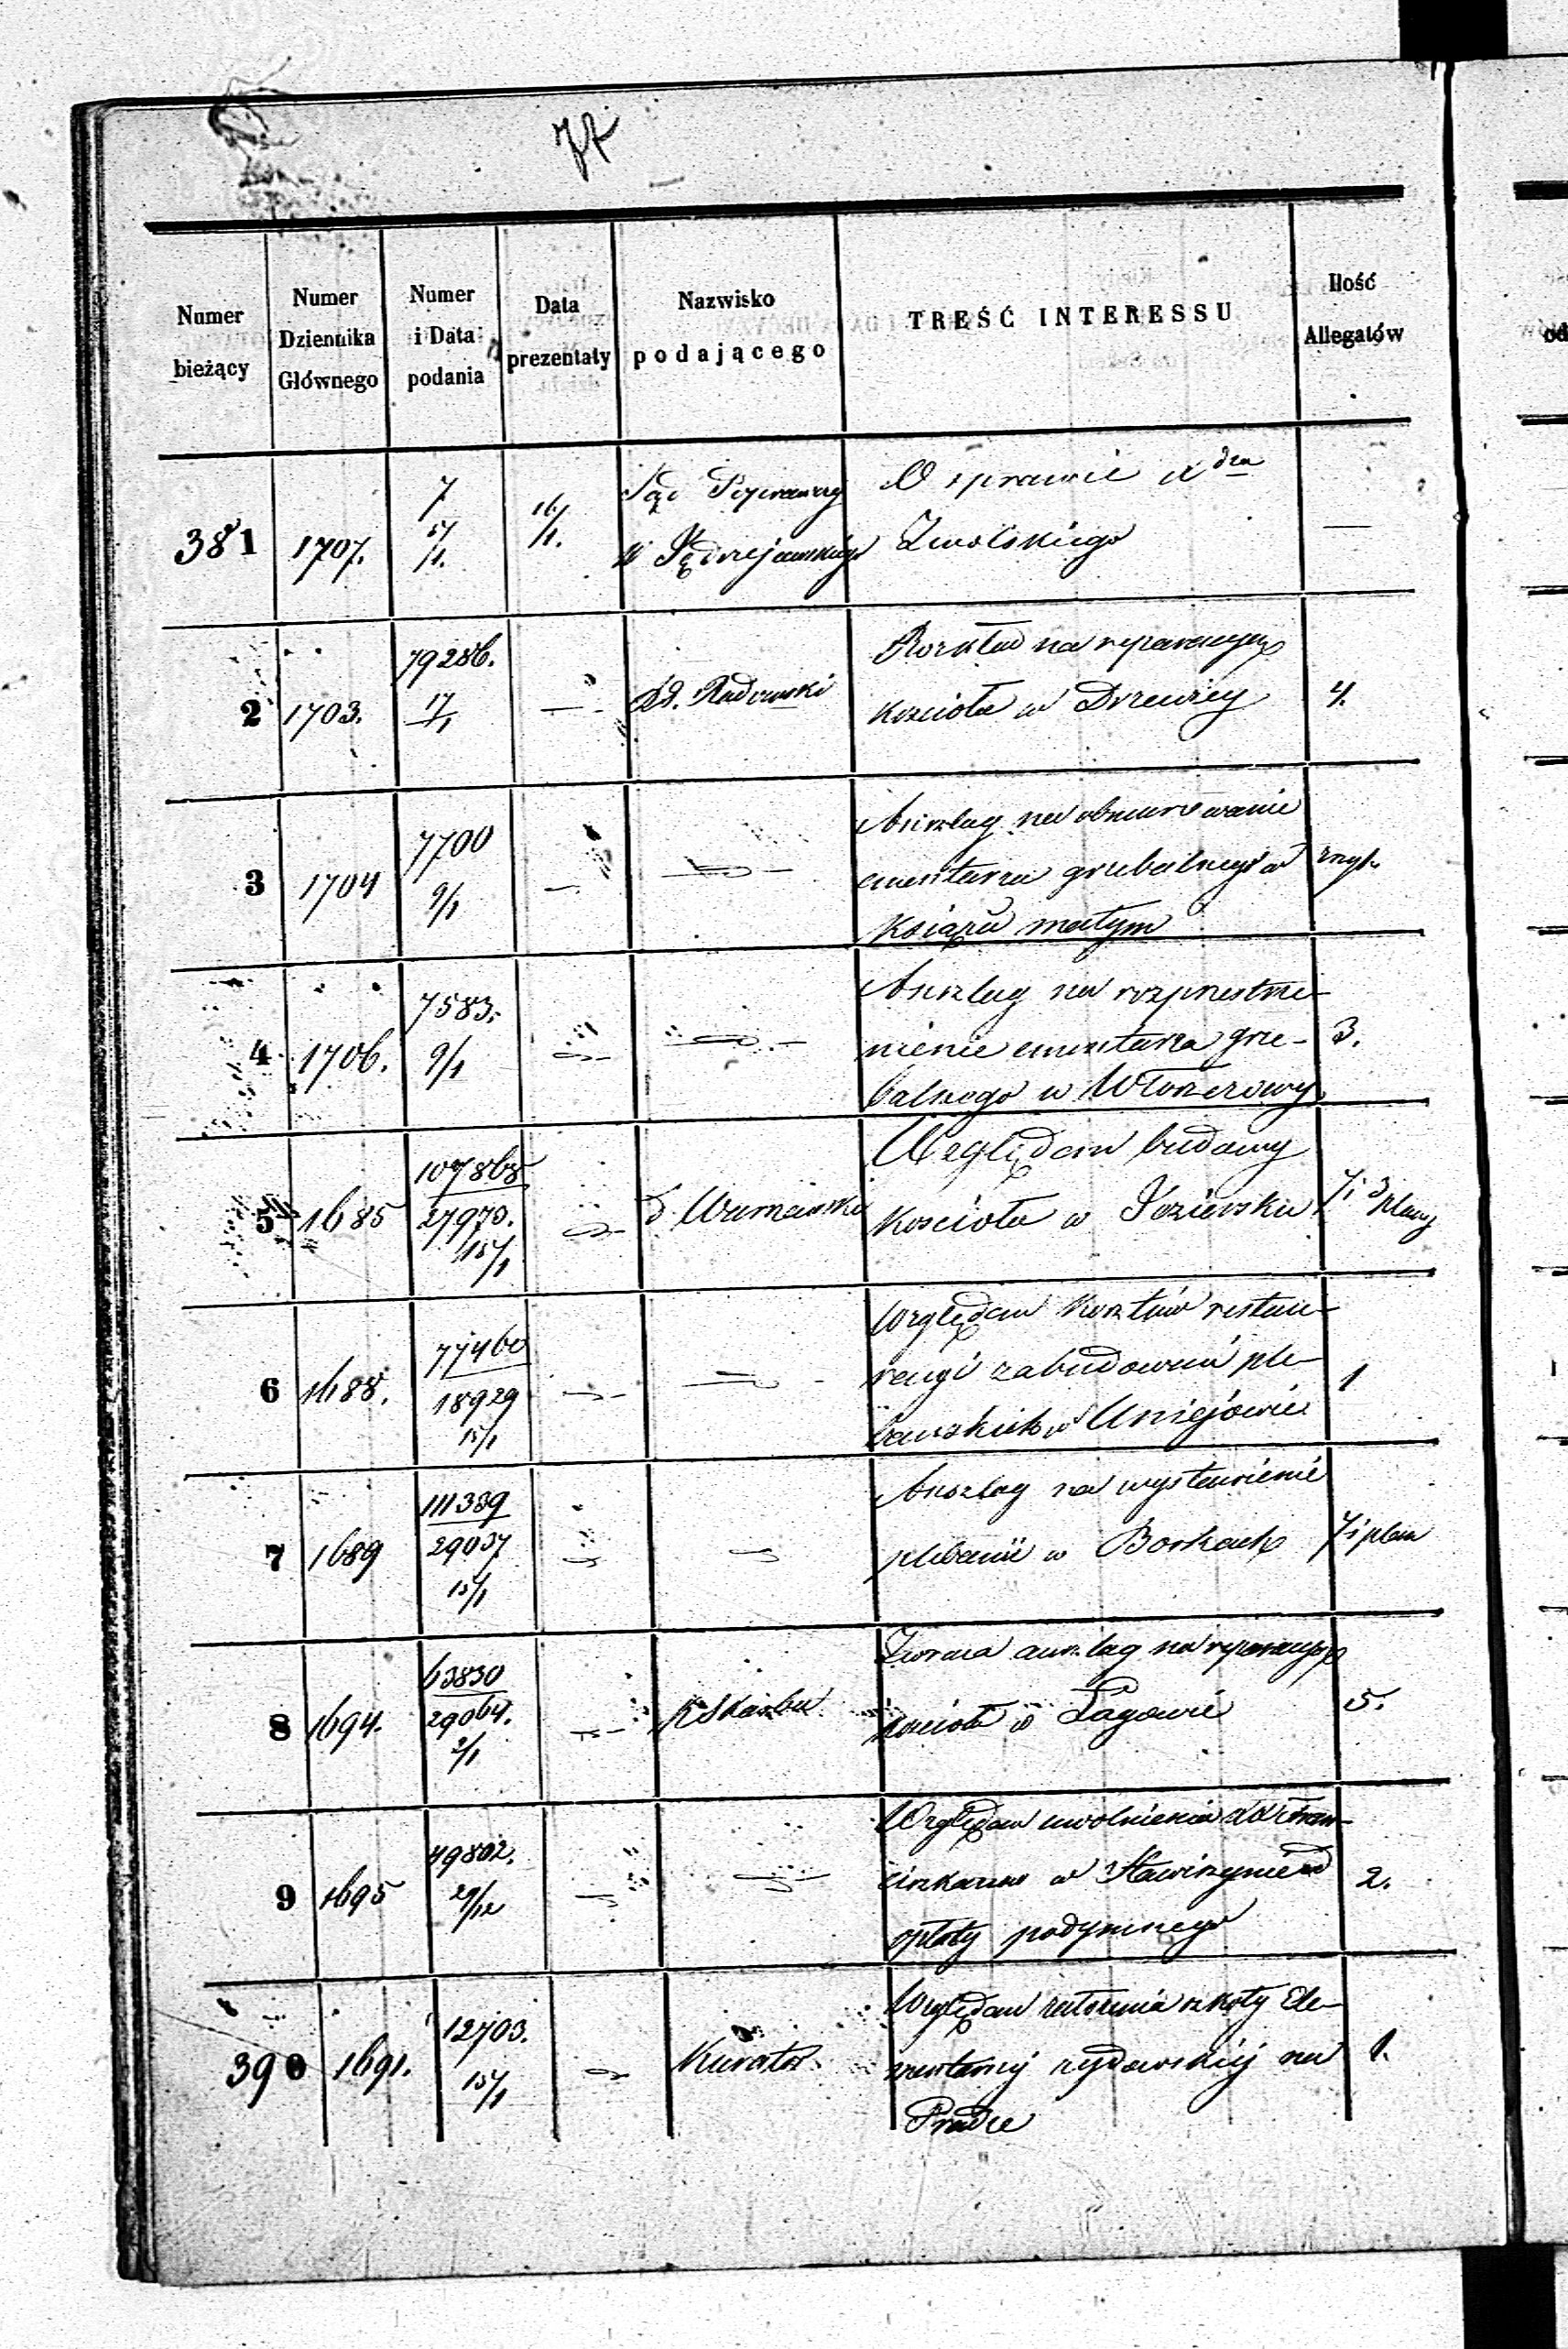 Numer bieżący
Numer Dziennika Głównego
Numer i Data podania
Data prezentaty
Nazwisko podającego
TREŚĆ INTERESSU
Ilość Allegatów
381
1707.
7
15/1.
16/1.
Sąd Poprawczy
W sprawie Xdza
Zwolskiego
—
2
1703.
79286.
17/1
Rd. Radomski
Rozkład na reparacyę
kościoła w Drzewicy
4.
3
1704
7700
9/1
Anszlag na obmurowanie
cmentarza grzebalnego w
Książu małym
4
1706.
7583.
9/1
Anszlag na rozprestrze-
nienie cmentarza grze-
balnego w Włoszczowy
3.
5
1685
107868
27970.
15/1
Warszawski
Względem budowy
kościoła w Jeziorsku
7 i 3 plany
6
1688.
77460
18929
15/1
Względem kosztów restau-
racyi zabudowań ple-
bańskich w Uniejowie
1
7
1689
111389
29037
15/1
Anszlag na wystawienie
plebanii w Borkach
7 i plan
8
1694.
63830
29064.
2/1
K Skarbu
Zwraca anszlag na reparacyę
kościoła w Łagowie
5.
9
1695
49802.
29/12
Względem uwolnienia XX Fran-
ciszkanów w Stawiszynie od
opłaty podymnego
2.
390
1691.
12703.
15/1
Kurator
Względem założenia szkoły Ele-
mentarnej żydowskiej na
Pradze
1.